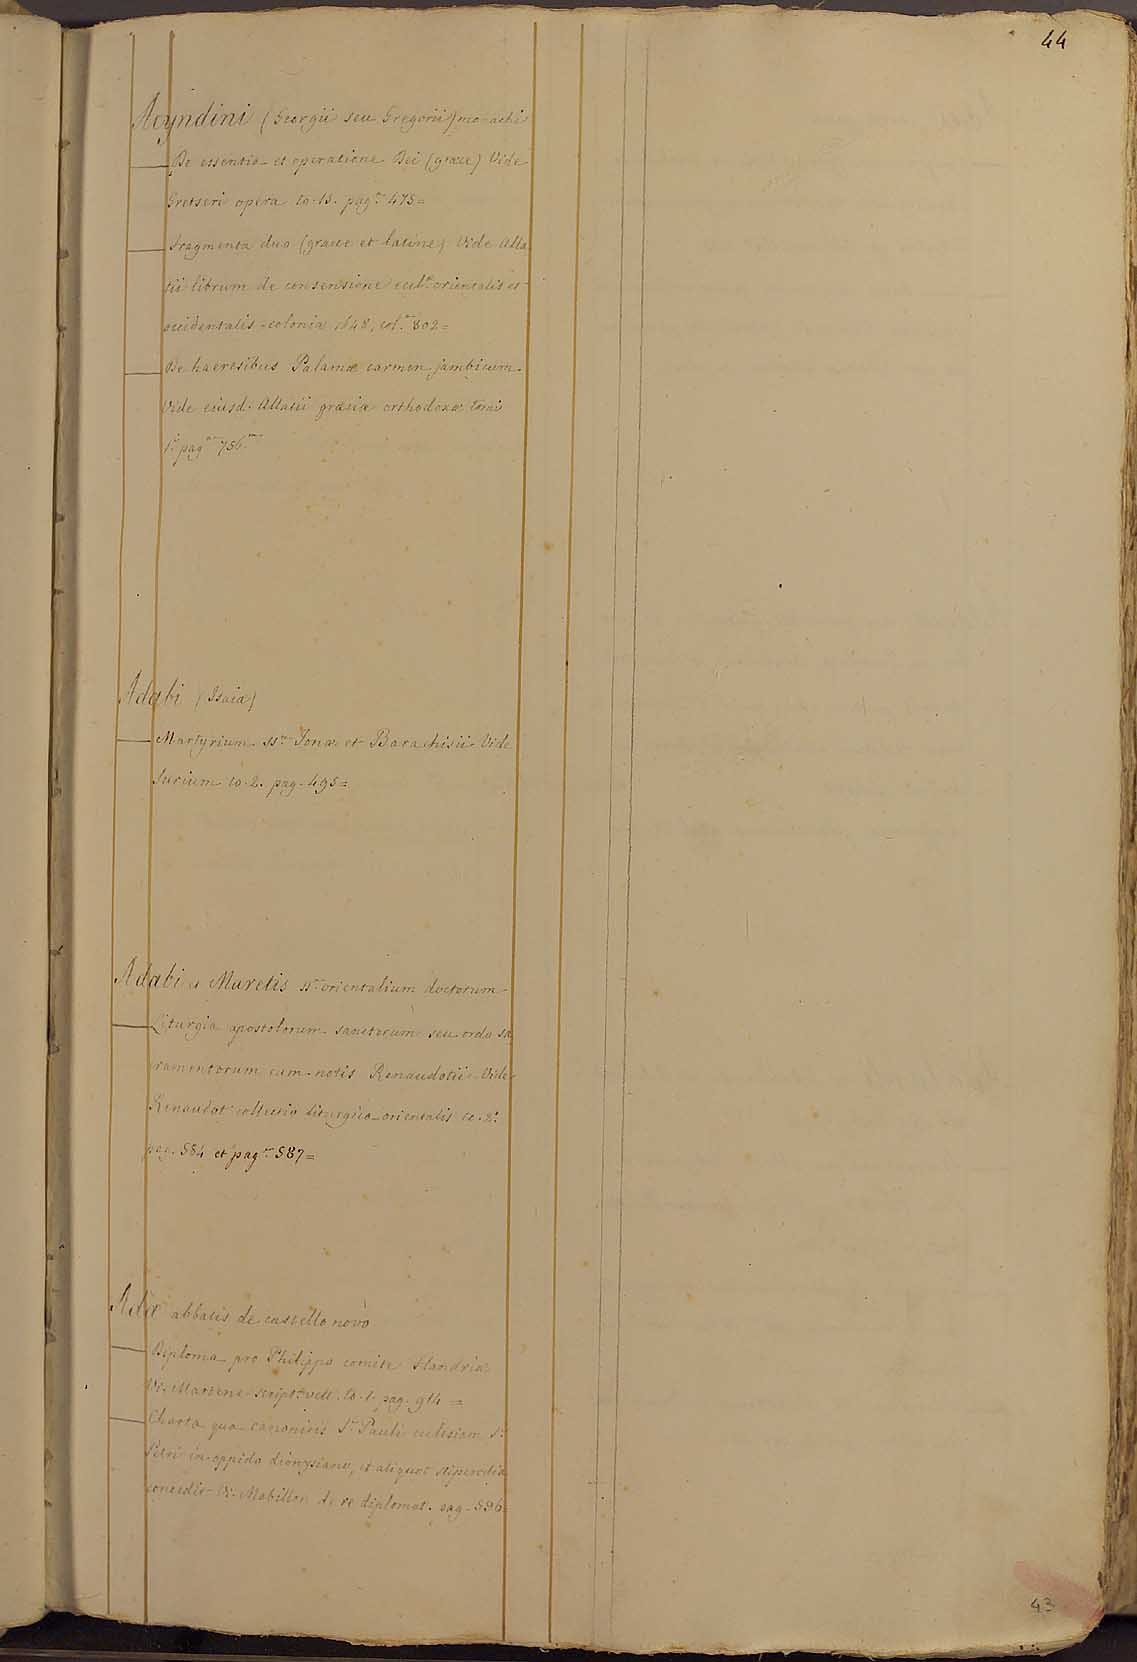 44
Acyndini (Georgii seu Gregorii) monachi
De essentia et operatione Dei (graece) Vide
Gretseri opera to. 15. pag.m 475=
Fragmenta duo (graece et latine) Vide Alla
tii librum de consensione eccl.ae orientalis et
occidentalis coloniae 1648, col.a 802=
De haeresibus Palamae carmen jambicum
Vide eiusd. Allatii graeciae orthodoxae tomi
1. pag.m 756.m
Adabi (Isaia)
Martyrium ss.m Jonae et Barachisii Vide
Surium to. 2. pag. 495=
Adabi et Maretis ss.m orientalium doctorum
Liturgia apostolorum sanctorum seu ordo sa
cramentorum cum notis Renaudotii Vide
Renaudot collectio liturgica orientalis to. 2.
pag. 584 et pag.m 587=
Adae abbatis de castello novo
Diploma pro Philippo comite Flandriae
Vi. Martene script. vett. to. 1. pag. 914=
Charta qua canonicis S.ti Pauli ecclesiam S.ti
Petri in oppido dionysiano, et aliquot stipendia
concedit Vi. Mabillon de re diplomat. pag. 596
43